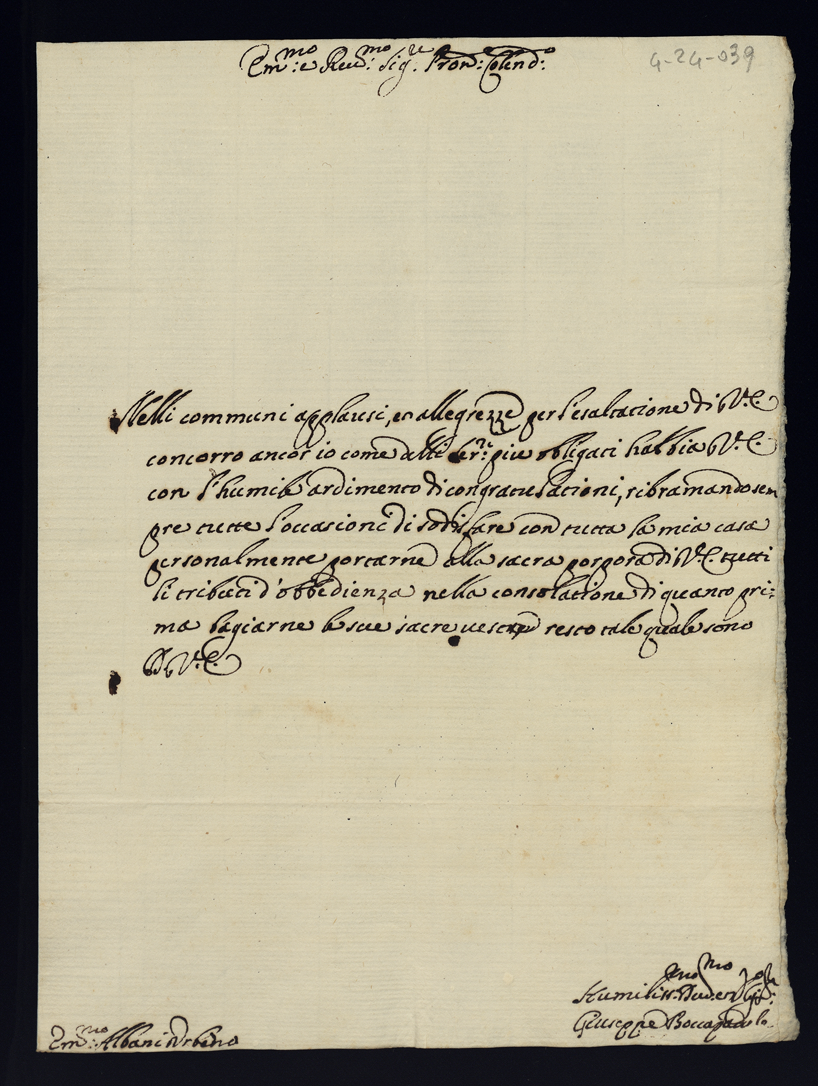 Em.mo e Rev.mo Sig.re Pron: Colend:o
4-24-039
Nelli communi applausi, et allegrezze per l'esaltatione di V.E.
concorro ancor io come delli ser:ri piu obligati habbia V.E.
con l'humile ardimento di congratulationi, ribramando sem
pre tutte l'occasioni di sodisfare con tutta la mia casa
personalmente portarne alla sacra porpora di V.E. tutti
li tributi d'obbedienza nella consolatione di quanto pri:
ma bagiarne le sue sacre vesti resto tale quale sono
Di V.E.
Humiliss. Dev. et
Giuseppe Boccapadule
Em.mo Albani Urbino